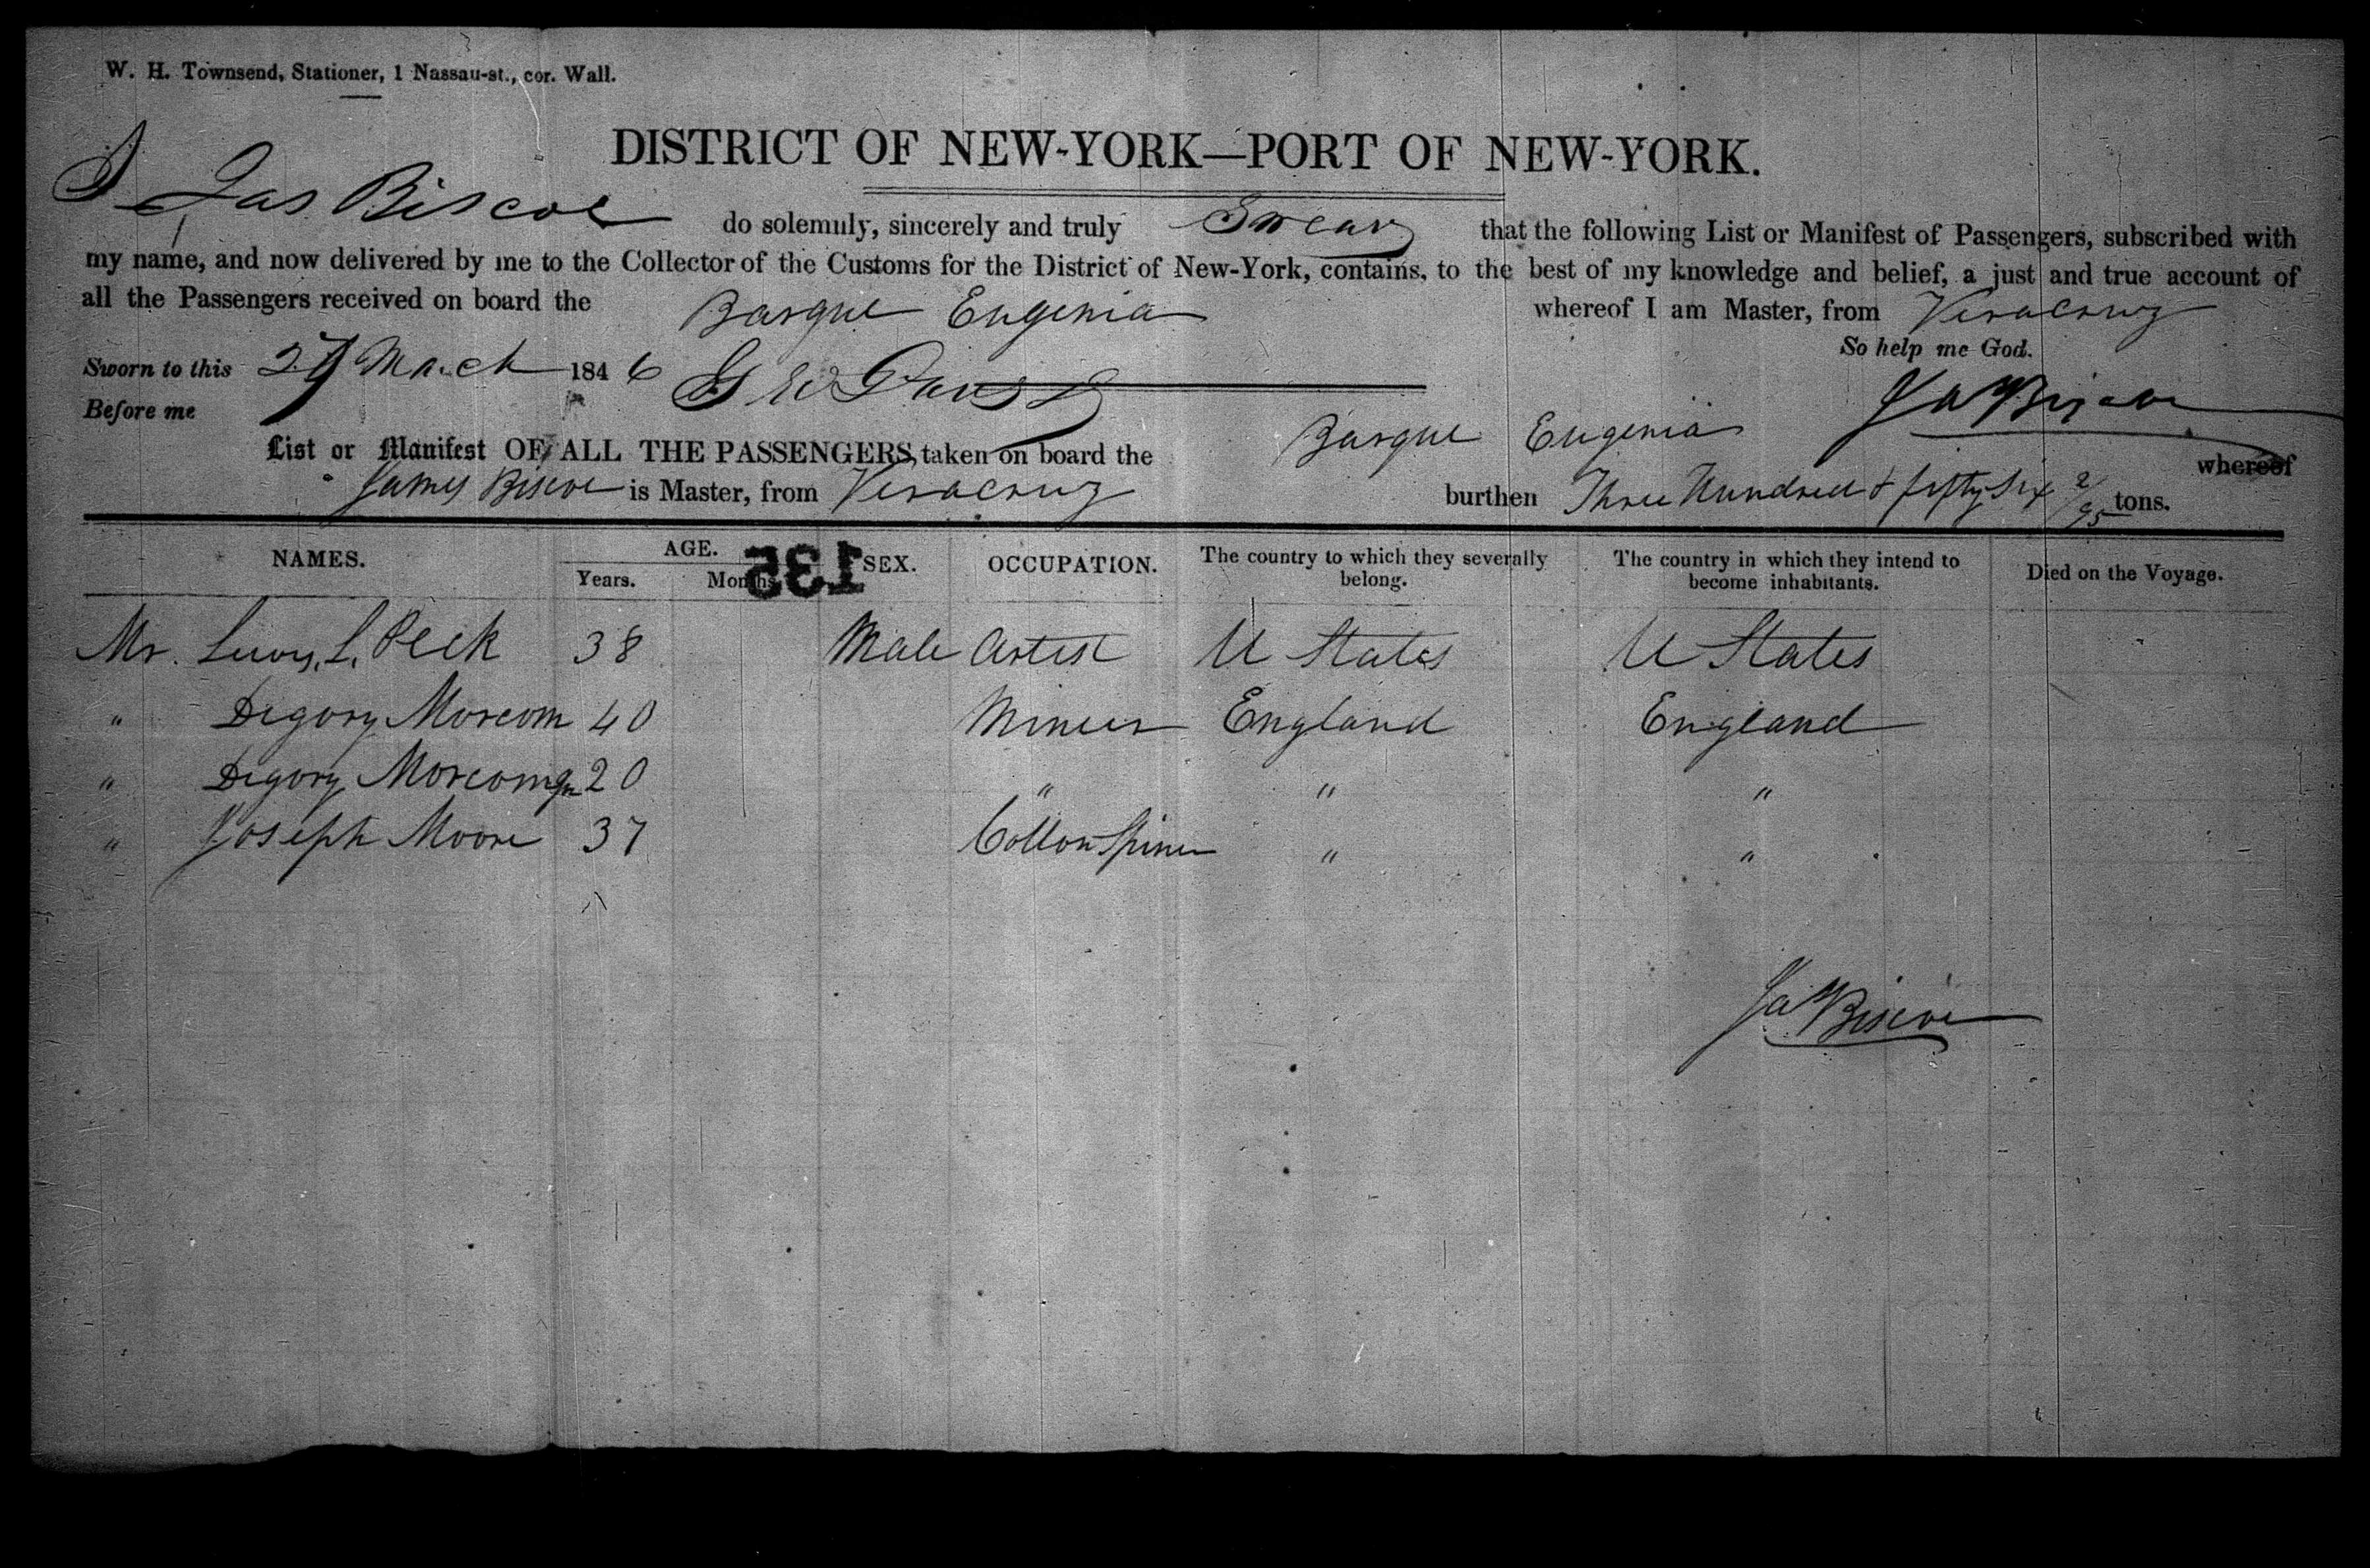 W. H. Townsend, Stationer, 1 Nassau-st., cor. Wall.
DISTRICT OF NEW-YORK—PORT OF NEW-YORK.
I Jas Biscoe do solemnly, sincerely and truly Swear that the following List or Manifest of Passengers, subscribed with
my name, and now delivered by me to the Collector of the Customs for the District of New-York, contains, to the best of my knowledge and belief, a just and true account of
all the Passengers received on board the Barque Eugenia whereof I am Master, from Veracruz
So help me God.
Sworn to this 27 March 1846
Before me
Jas Biscoe
List or Manifest OF ALL THE PASSENGERS, taken on board the Barque Eugenia whereof
James Biscoe is Master, from Veracruz burthen Three Hundred & fifty six 2/95 tons.
135
NAMES. AGE. Years. Months. SEX. OCCUPATION. The country to which they severally belong. The country in which they intend to become inhabitants. Died on the Voyage.
Mr. Lewis L. Peck 38 Male Artist U States U States
" Degory Morcom 40 Miner England England
" Degory Morcom Jn 20 " " "
" Joseph Moore 37 Cotton Spiner " "
Jas Biscoe